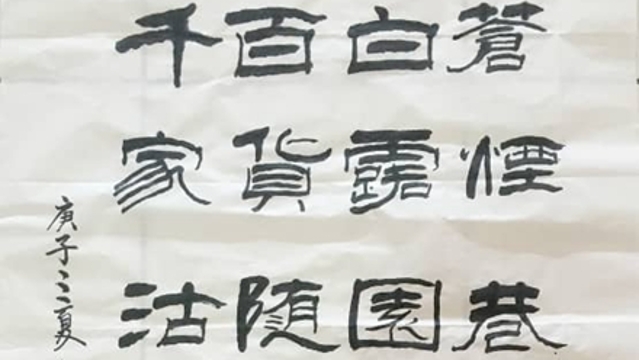 蒼煙巷
白露園
百貨随
千家沽
庚子之夏